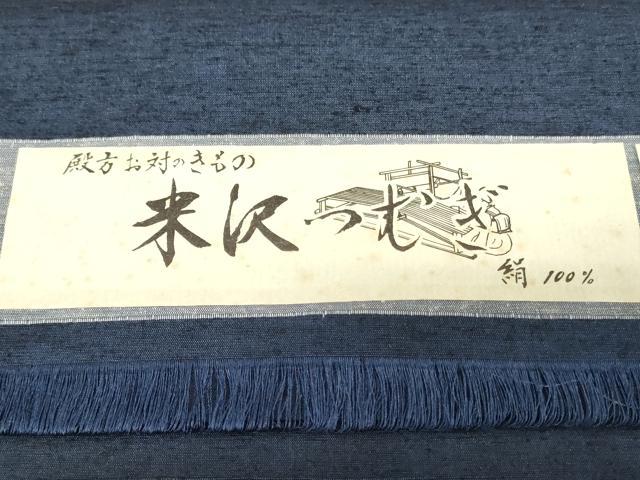 殿方お対のきもの
米沢つむぎ
絹 100%